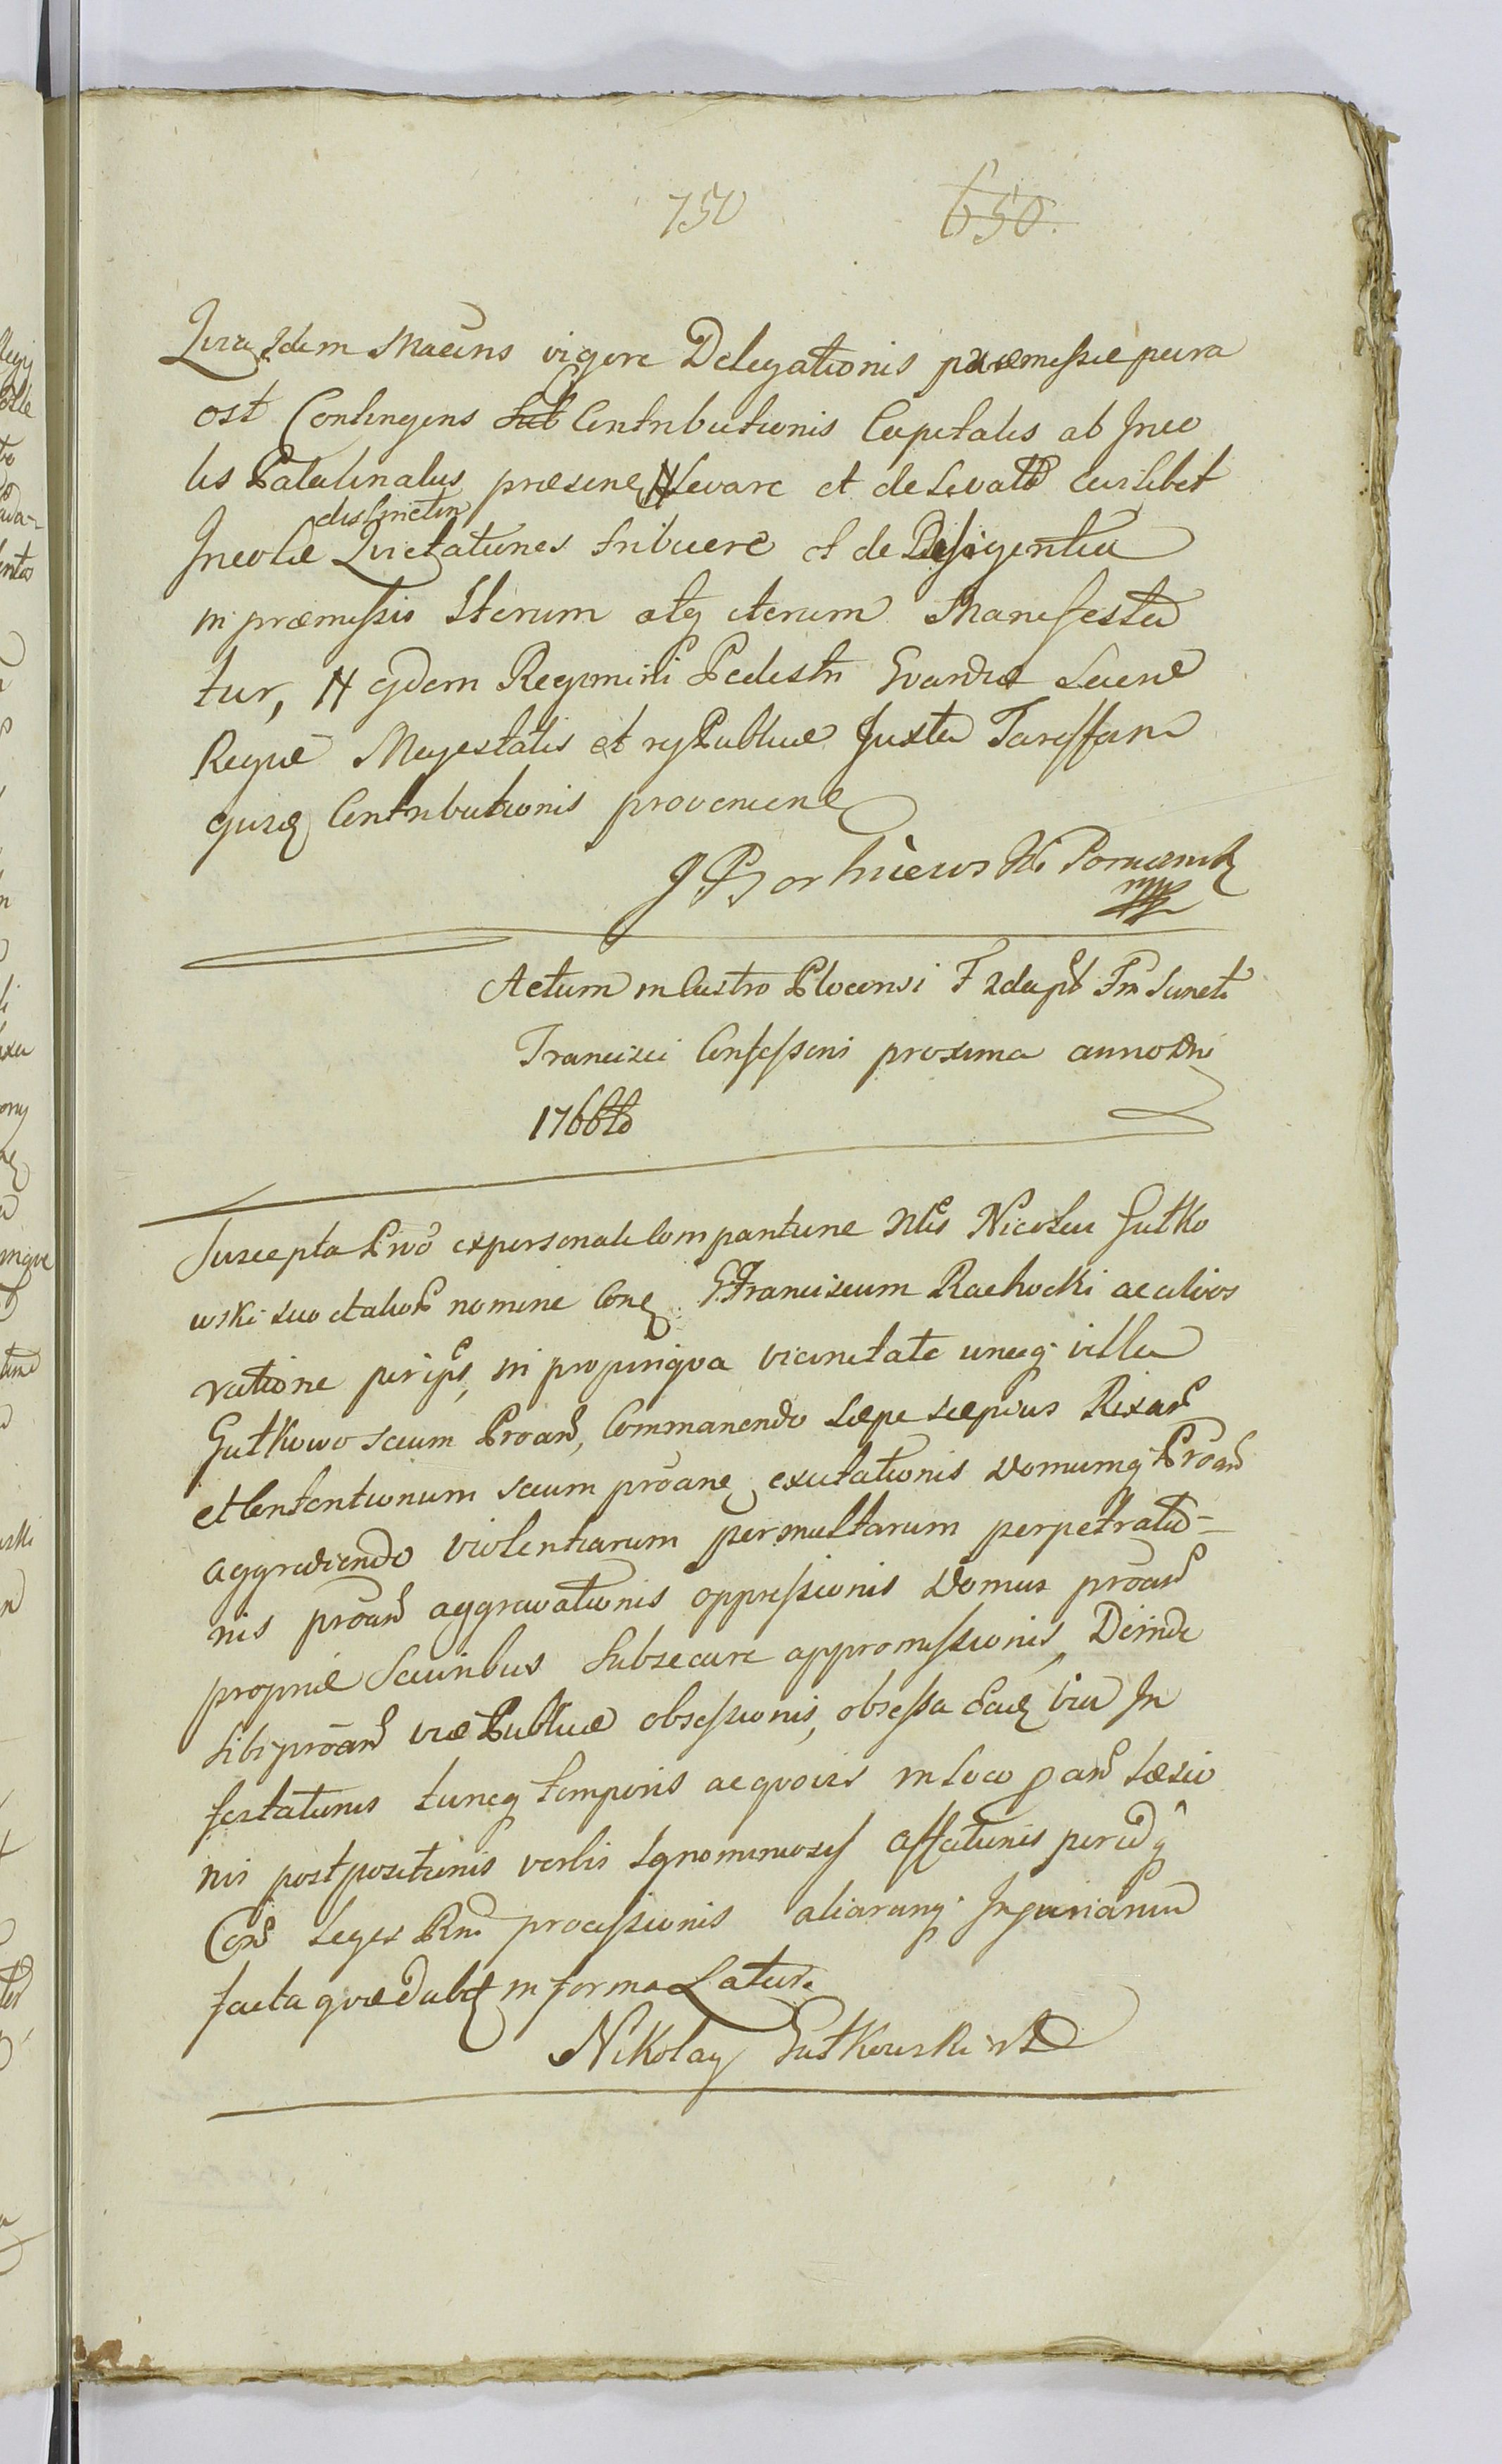 750 650.
Quia Idem Maeins vigore Delegationis praemissae para
est Contingens Sub Contributionis Capitalis ab Inco
lis Palatinatus praesene Levare et de Levatis cuilibet
distinctim
Incolae Quietationes tribuere et de Diligentia
in praemissis Iterum atq iterum Manifesta
tur, qdem Regimini Pedestri Gvardiae Sacrae
Regiae Majestatis et reyPublicae Juxta Tariffam
Contributionis proveniene
J Borkiewski
mp
Actum in Castro Plocensi F 2da pt Fm Sancti
Francisci Confessoris proxima anno Dni
1766to
Suscepta Ptio ex personali Comparitione Nlis Nicolai Gutko
wski suo et alior nomine Cone G Franciscum Rachocki ac alios
ratione per ips, in propinqva vicinitate uneq villa
Gutkowo secum Proan, Commanendo saepe saepius Rixar
et Contentionum secum proane, excitationis Domumq Proan
aggrediendo violentiarum permultarum perpetratio-
nis proan aggravationis oppressionis Domus proan
propriae Securibus Subsecare appromissionis, Deinde
sibi proan viae Publicae obsessionis, obsessa eaq via In
festationis tuncq temporis aeqvoies in loco pan Laesio
nis postpositionis verbis Ignominiosis affectionis perid q
Con Leges Rni processionis aliarumq Injuriarum
facta qvae dabt in forma Latur.
Nikolay Gutkowski